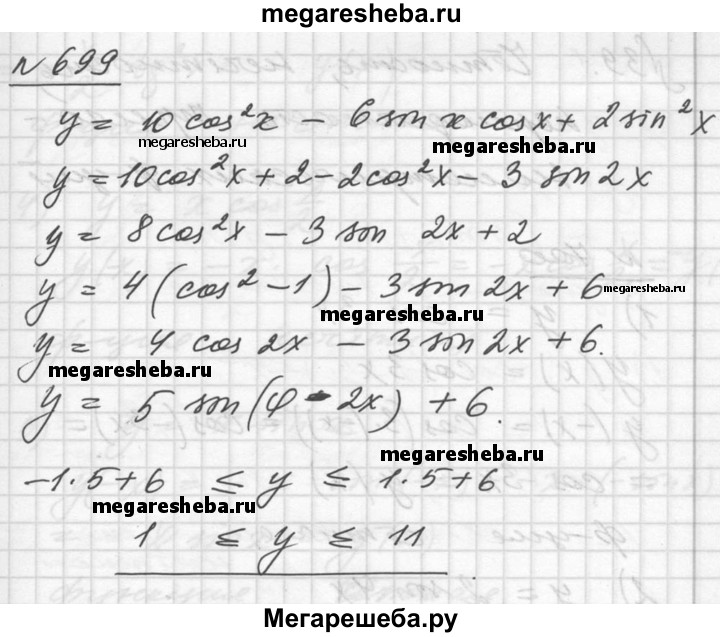 megaresheba.ru
№ 699
y = 10 cos²x - 6 sin x cos x + 2 sin²x
megaresheba.ru megaresheba.ru
y = 10cos²x + 2 - 2cos²x - 3 sin 2x
y = 8cos²x - 3 sin 2x + 2
y = 4(cos² - 1) - 3 sin 2x + 6 megaresheba.ru
megaresheba.ru
y = 4 cos 2x - 3 sin 2x + 6.
megaresheba.ru
y = 5 sin(φ - 2x) + 6.
megaresheba.ru
-1·5+6 ≤ y ≤ 1·5+6
megaresheba.ru
1 ≤ y ≤ 11
Мегарешеба.ру